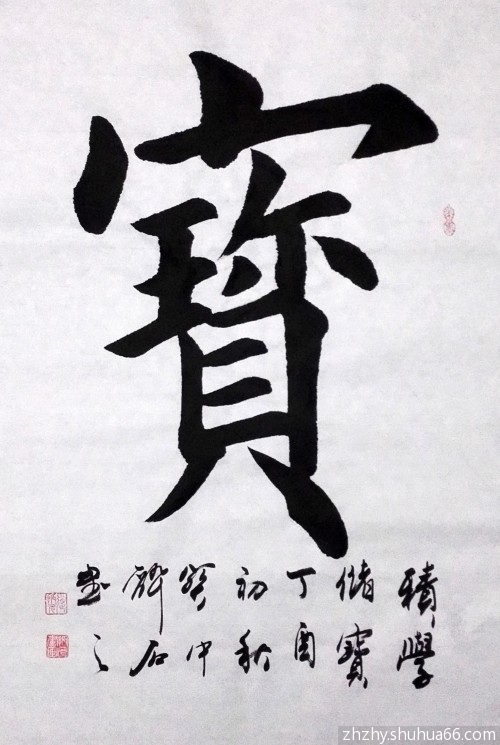 寳
積學
儲寶
丁酉
初秋
中
石
書之
zhzhy.shuhua66.com